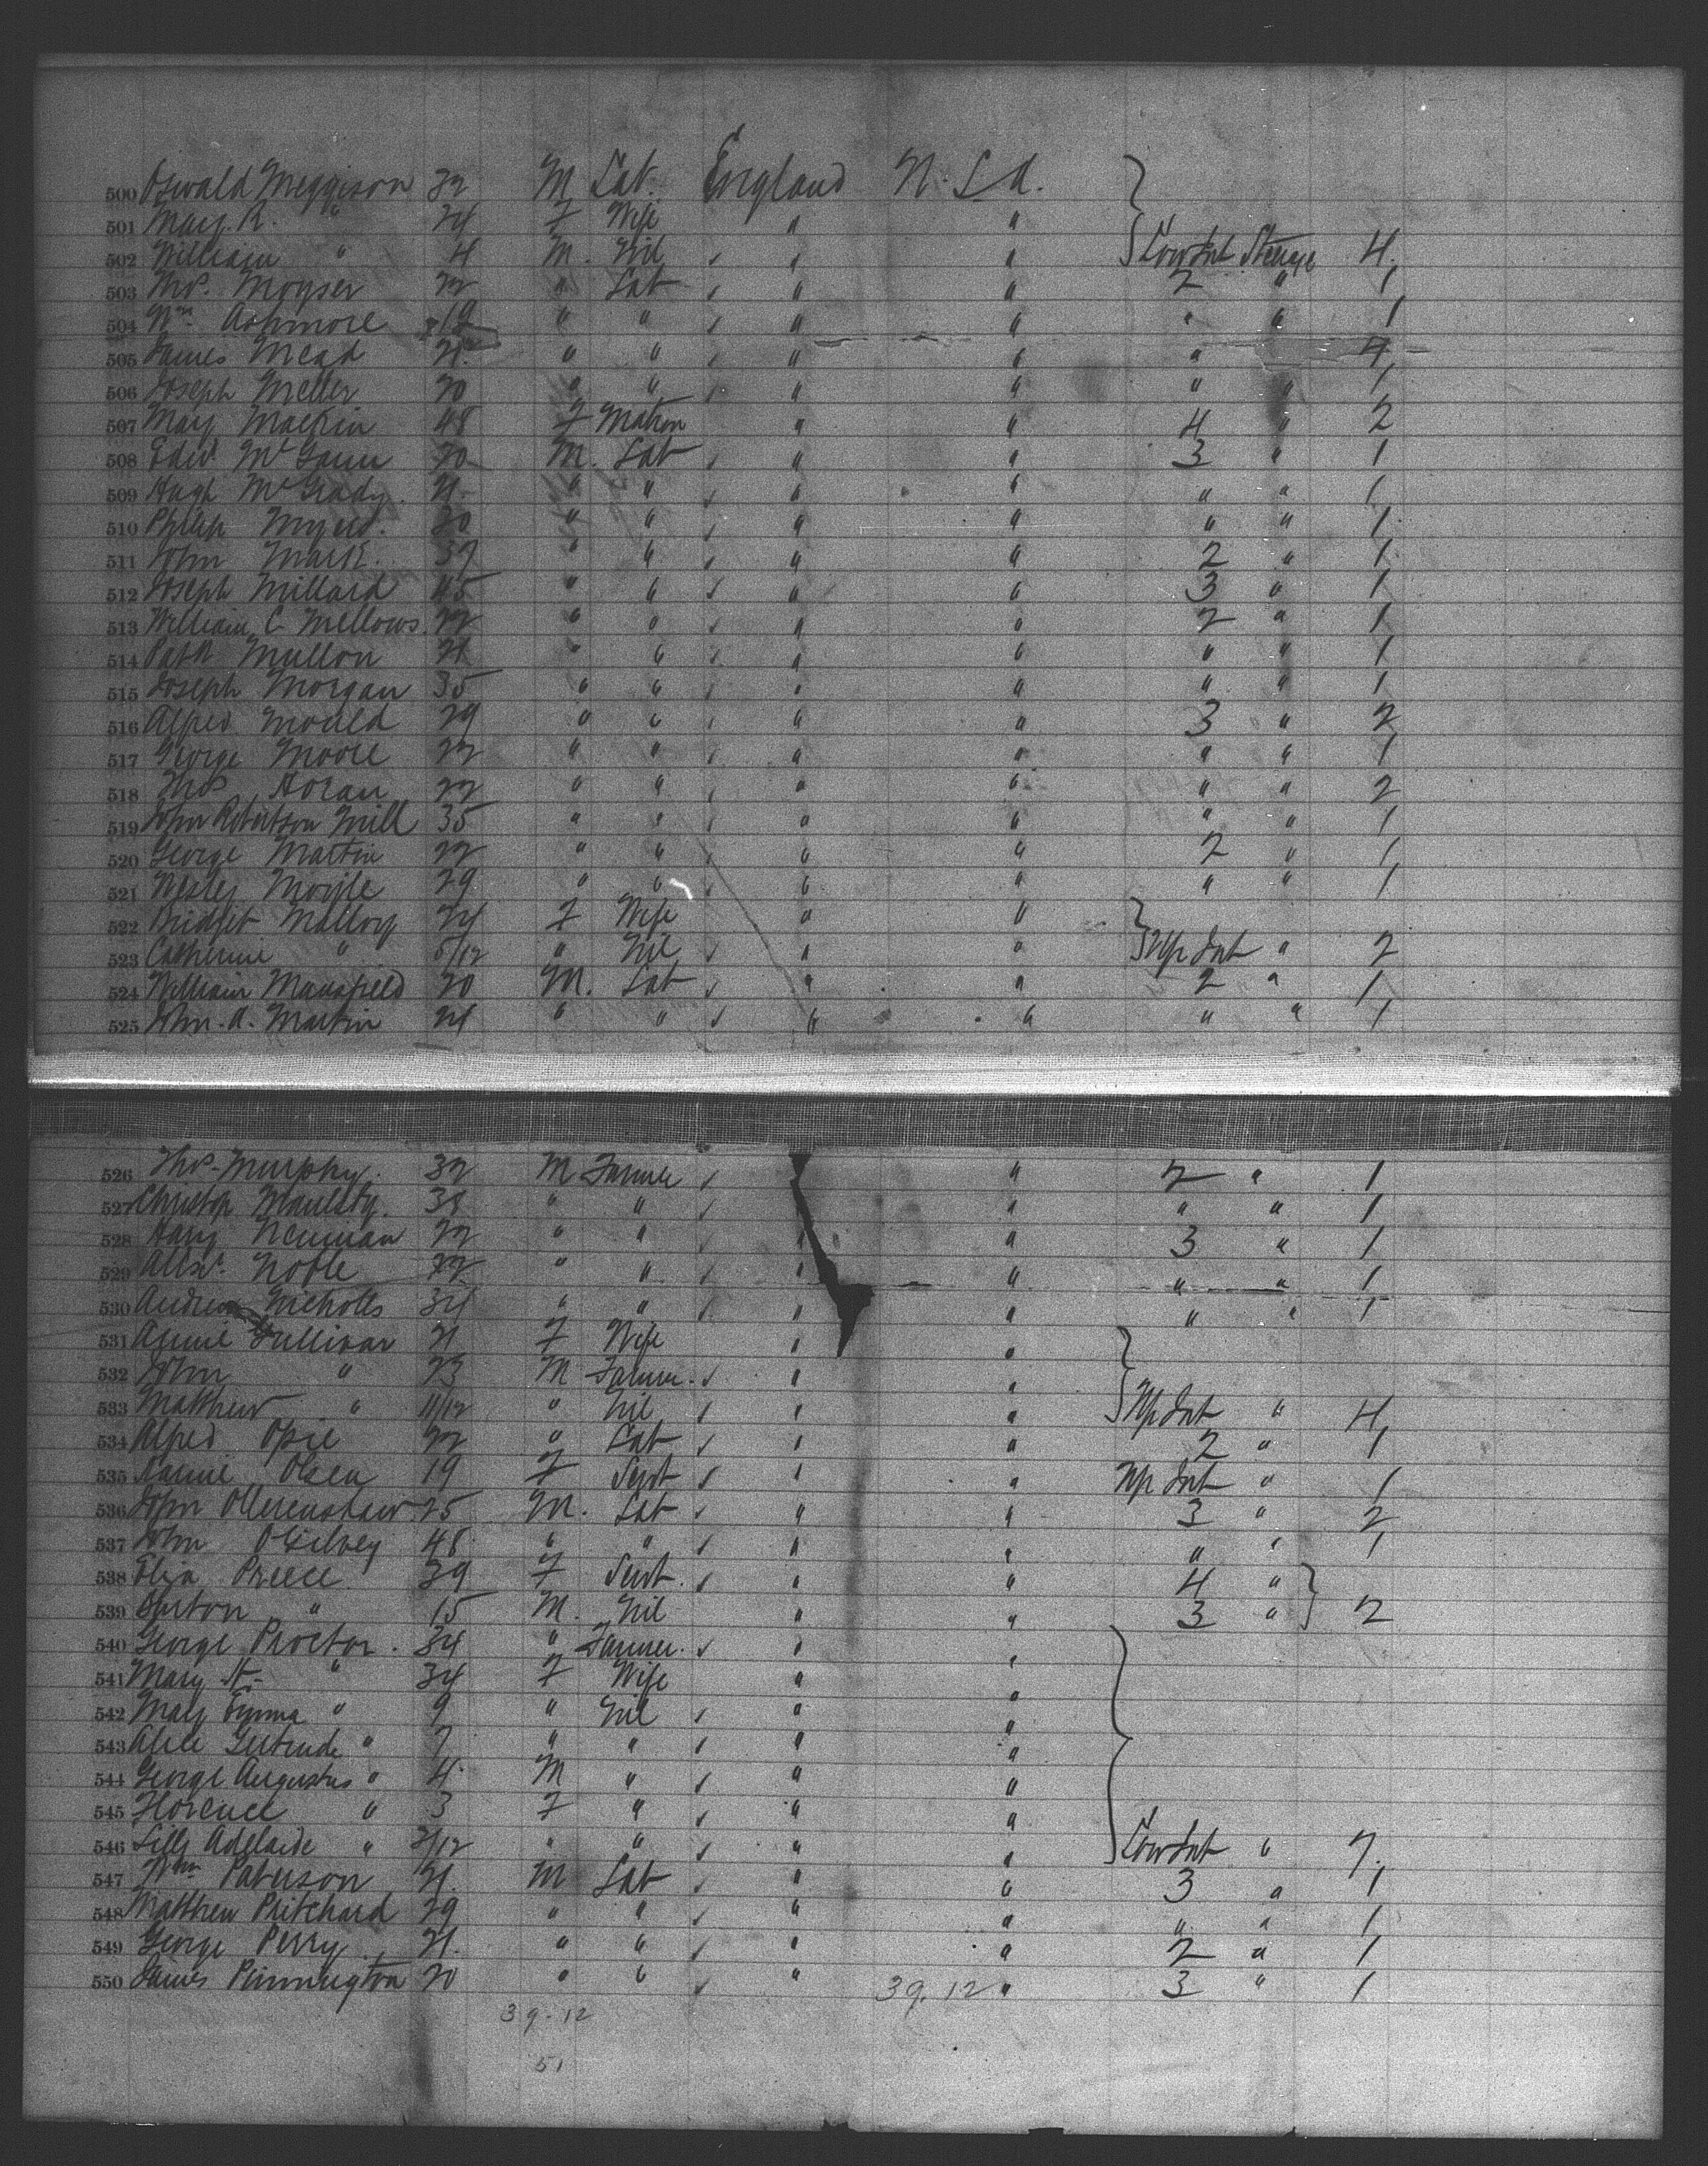 500 Oswald Meggison 32 M Lab. England U.S.A.
501 Mary R. " 24 F Wife " "
502 William " 4 M. Nil " " Low Int Steerage 4
503 Thos. Moyser 22 " Lab " " 2 " 1
504 Wm Ashmore 19 " " " " " " 1
505 James Mead 21 " " " " "
506 Joseph Meller 20 " " " " " " 1
507 Mary Mackin 48 F Matron " " 4 " 2
508 Edwd. McGann 20 M. Lab " " 3 " 1
509 Hugh McGrady 21 " " " " " " 1
510 Philip Myers. 30 " " " " " " 1
511 John Mark. 37 " " " " 2 " 1
512 Joseph Millard 45 " " " " 3 " 1
513 William C Mellows 22 " " " " 2 " 1
514 Patk Mullon 21 " " " " " " 1
515 Joseph Morgan 35 " " " " " " 1
516 Alfred Mould 29 " " " " 3 " 2
517 George Moore 22 " " " " " " 1
518 Thos Horan 22 " " " " " " 2
519 John Robertson Mill 35 " " " " " " 1
520 George Martin 22 " " " " 2 " 1
521 Wesley Moyle 29 " " " " " " 1
522 Bridget Mallory 24 F Wife " "
523 Catherine " 5/12 " Nil " " Up Int " 2
524 William Mansfield 20 M. Lab " " 2 " 1
525 John. A. Martin 24 " " " " " " 1
526 Thos. Murphy. 32 M Farmer " 2 " 1
527 38 " " " " " 1
528 Harry Newman 22 " " " " 3 " 1
529 Alexr. Noble 22 " " " " " " 1
530 Andrew Nicholls 34 " " " " " " 1
531 Annie Sullivan 21 F Wife " "
532 John " 23 M Farmer. " "
533 Matthew " 11/12 " Nil " " Up Int " 4
534 Alfred Opie 22 " Lab " " 2 " 1
535 Olsen 19 F Servt " " Up Int " 1
536 John Ollerenshaw 25 M. Lab " " 3 " 2
537 John Ogilvey 48 " " " " " " 1
538 Eliza Preece 39 F Servt. " " 4 "
539 Burton " 15 M. Nil " " 3 " 2
540 George Proctor. 34 " Farmer. " "
541 Mary H. " 34 F Wife " "
542 Mary Emma " 9 " Nil " "
543 Alice Gertrude " 7 " " " "
544 George Augustus " 4 M " " "
545 Florence " 3 F " " "
546 Lilly Adelaide " 2/12 " " " " Low Int " 7
547 Wm Paterson 21. M Lab " " 3 " 1
548 Matthew Pritchard 29 " " " " " " 1
549 George Perry 21. " " " " 2 " 1
550 James Pinnington 20 " " " 39.12 " 3 " 1
39-12
51